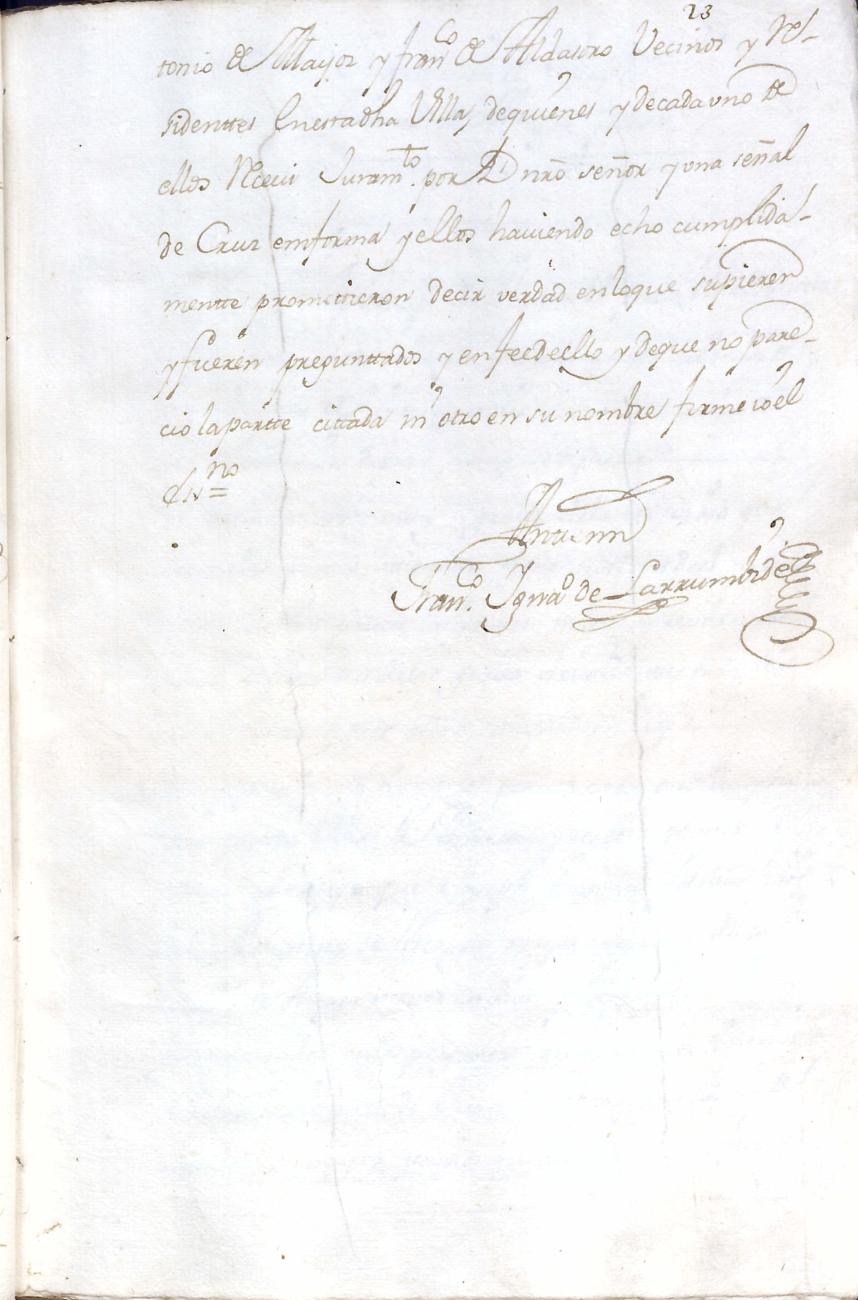 23
tonio de Mayor y fran.co de Aldasoro Vecinos y Re-
sidenttes Enesta dha Villa, de quienes y de cada uno de
ellos Recevi Juram.to por D nrō señor y una señal
de Cruz em forma y ellos haviendo echo cumplida-
mentte promettieron decir verdad en lo que supieren
y fueren preguntados y en fee de ello y de que no pare-
cio la partte cittada ni otro en su nombre firme io el
ess.no =
Antte mi
Fran.co Ygna.o de Larrumbide